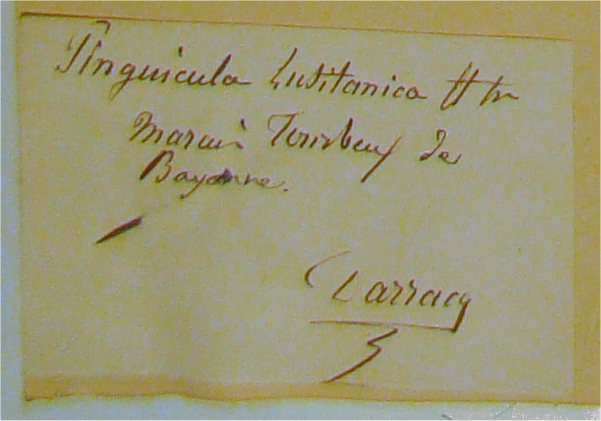 Pinguicula Lusitanica
Marais Tourbeux de
Bayonne.
Darracq